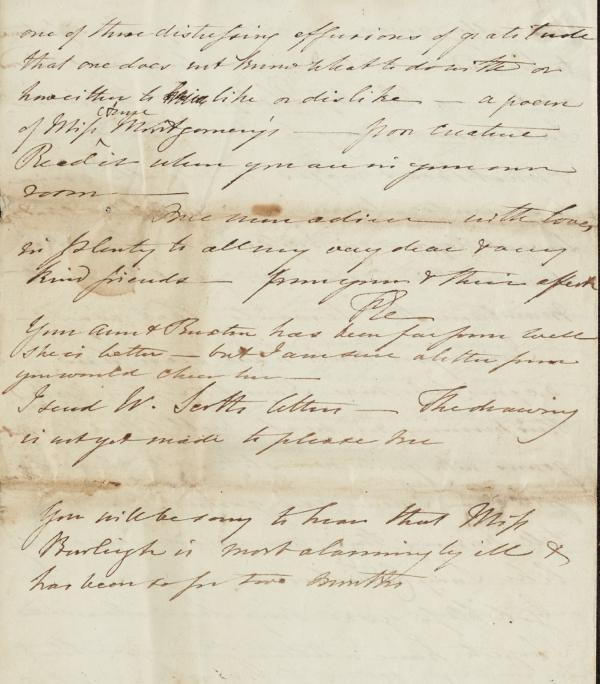 one of those distressing effusions of gratitude
that one does not know what to do with or
how either to like or dislike — a poem
of Miss Montgomery's — poor creature
Read it when you are in your own
room —
now adieu — with loves
in plenty to all my very dear & very
kind friends — from yours & their affect
Your Aunt Ruxton has been far from well
She is better — but I am sure a letter from
you would cheer her —
I send W. Scotts letters — The drawing
is not yet made to please me
You will be sorry to hear that Miss
Burleigh is most alarmingly ill &
has been so for two months